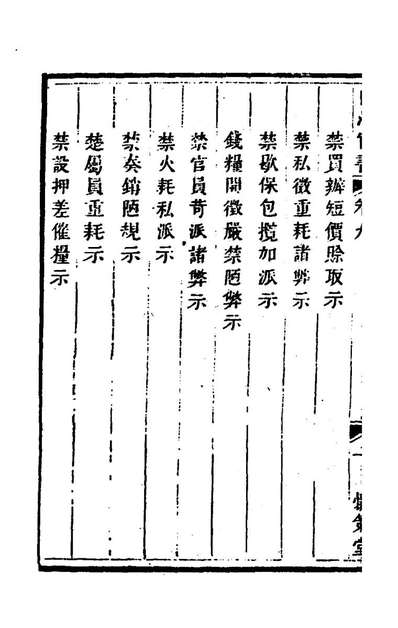 禁買辦短價賒取示
禁私徵重耗諸弊示
禁歇保包攬加派示
錢糧開徵嚴禁陋弊示
禁官員苛派諸弊示
禁火耗私派示
禁奏銷陋規示
禁屬員重耗示
禁設押差催糧示